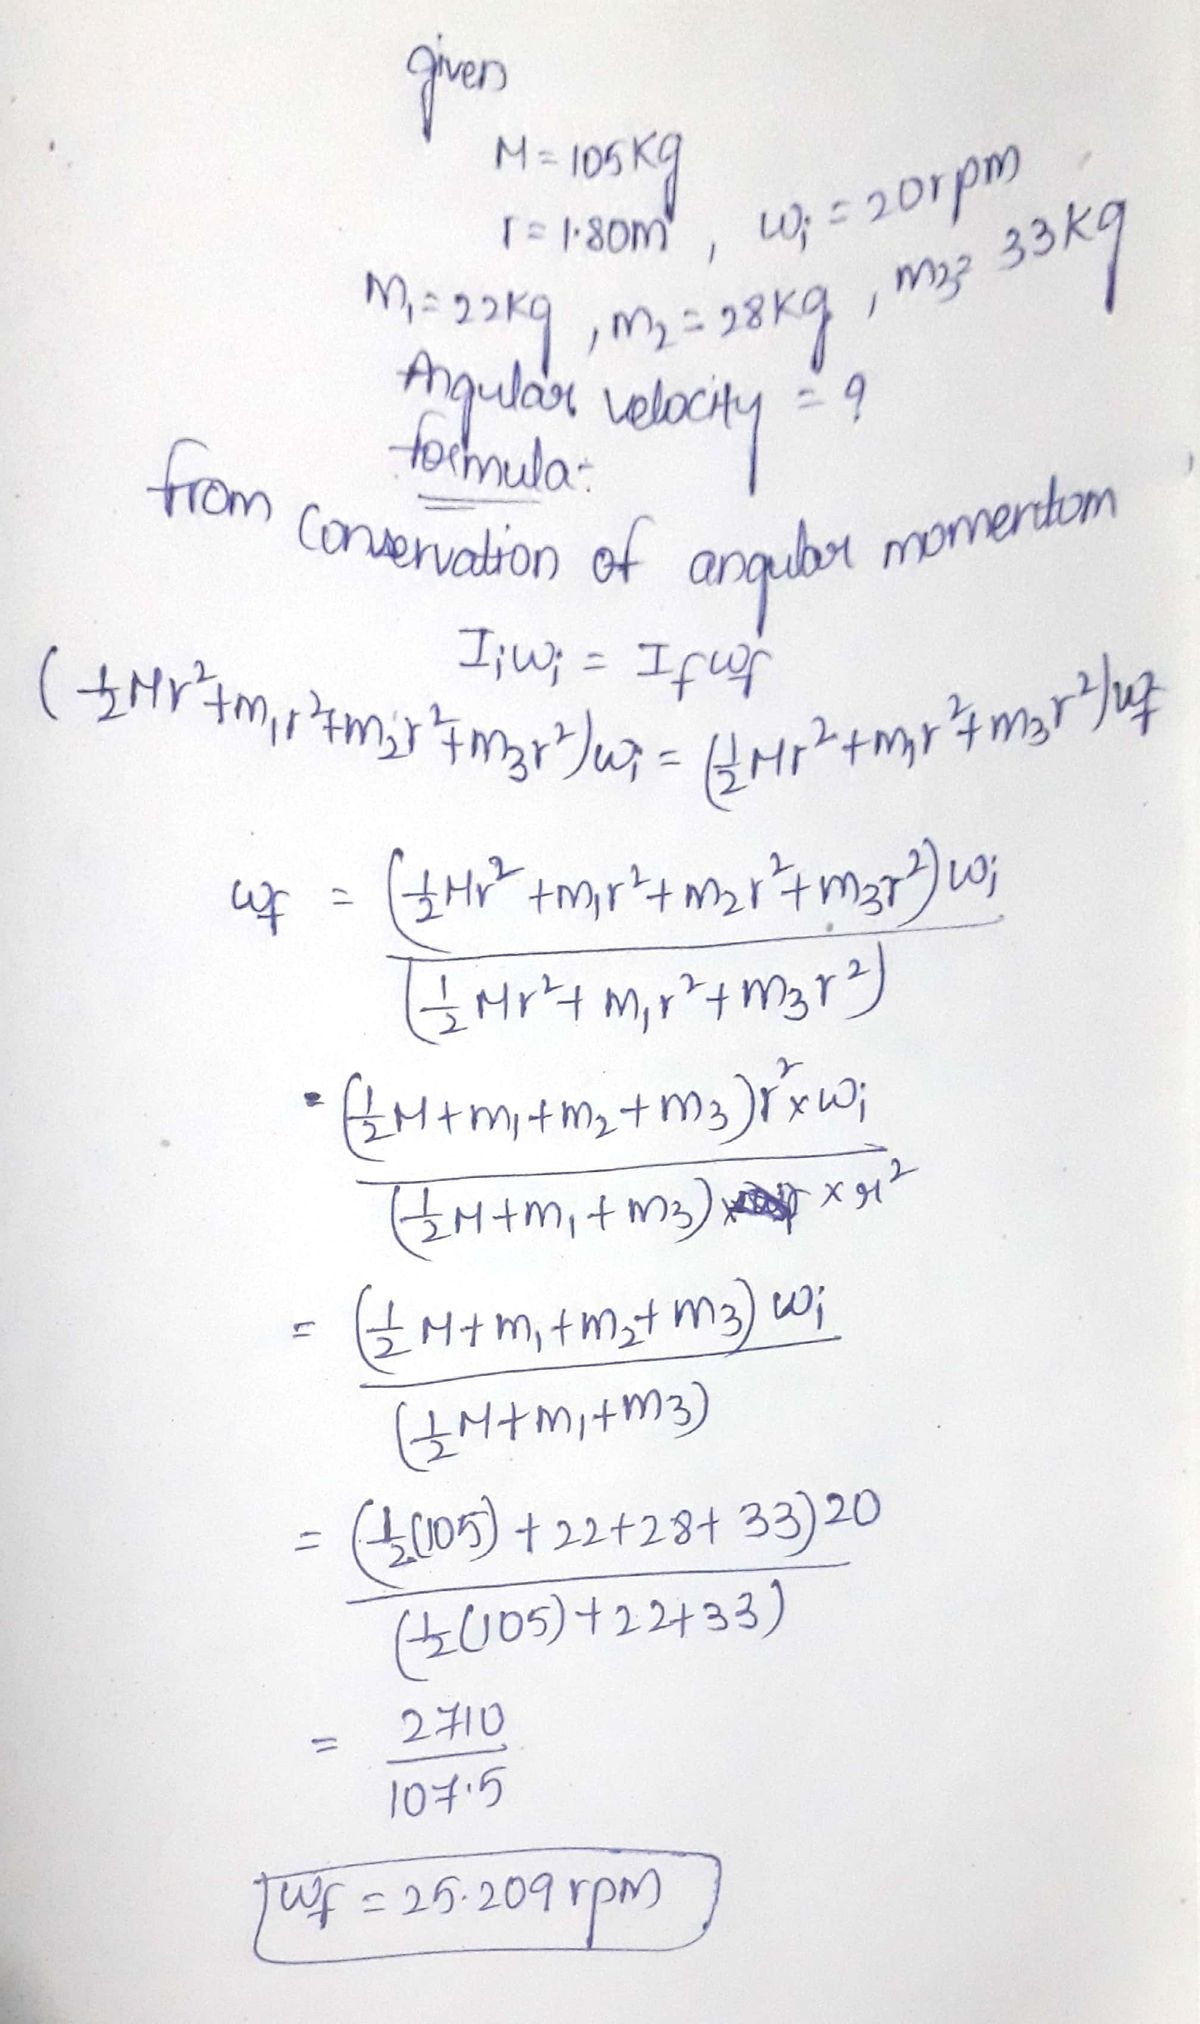 given
M = 105Kg
r = 1.80m , ωi = 20rpm
m₁ = 22kg , m₂ = 28kg , m₃ = 33kg
Angular velocity = ?
formula:
from conservation of angular momentom
Iiωi = Ifωf
(½Mr²+m₁r²+m₂r²+m₃r²)ωi = (½Mr²+m₁r²+m₃r²)ωf
ωf = (½Mr²+m₁r²+m₂r²+m₃r²)ωi
(½Mr²+m₁r²+m₃r²)
= (½M+m₁+m₂+m₃)r²×ωi
(½M+m₁+m₃) ×r²
= (½M+m₁+m₂+m₃)ωi
(½M+m₁+m₃)
= (½(105)+22+28+33)20
(½(105)+22+33)
= 2710
107.5
ωf = 25.209 rpm